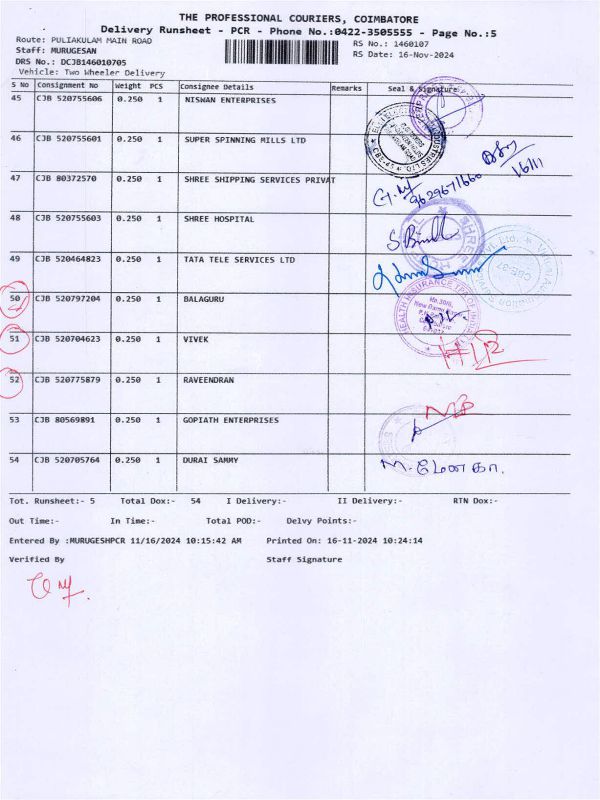 THE PROFESSIONAL COURIERS, COIMBATORE
Delivery Runsheet - PCR - Phone No.:0422-3505555 - Page No.:5
Route: PULIAKULAM MAIN ROAD
RS No.: 1460107
Staff: MURUGESAN
RS Date: 16-Nov-2024
DRS No.: DCJB146010705
Vehicle: Two Wheeler Delivery
S No Consignment No Weight PCS Consignee Details Remarks Seal & Signature
45 CJB 520755606 0.250 1 NISWAN ENTERPRISES
46 CJB 520755601 0.250 1 SUPER SPINNING MILLS LTD
16/11
47 CJB 80372570 0.250 1 SHREE SHIPPING SERVICES PRIVAT
9629671660
48 CJB 520755603 0.250 1 SHREE HOSPITAL
49 CJB 520464823 0.250 1 TATA TELE SERVICES LTD
50 CJB 520797204 0.250 1 BALAGURU
51 CJB 520704623 0.250 1 VIVEK
52 CJB 520775879 0.250 1 RAVEENDRAN
53 CJB 80569891 0.250 1 GOPIATH ENTERPRISES
54 CJB 520705764 0.250 1 DURAI SAMMY
M. மேனகா.
Tot. Runsheet:- 5 Total Dox:- 54 I Delivery:- II Delivery:- RTN Dox:-
Out Time:- In Time:- Total POD:- Delvy Points:-
Entered By :MURUGESHPCR 11/16/2024 10:15:42 AM Printed On: 16-11-2024 10:24:14
Verified By Staff Signature